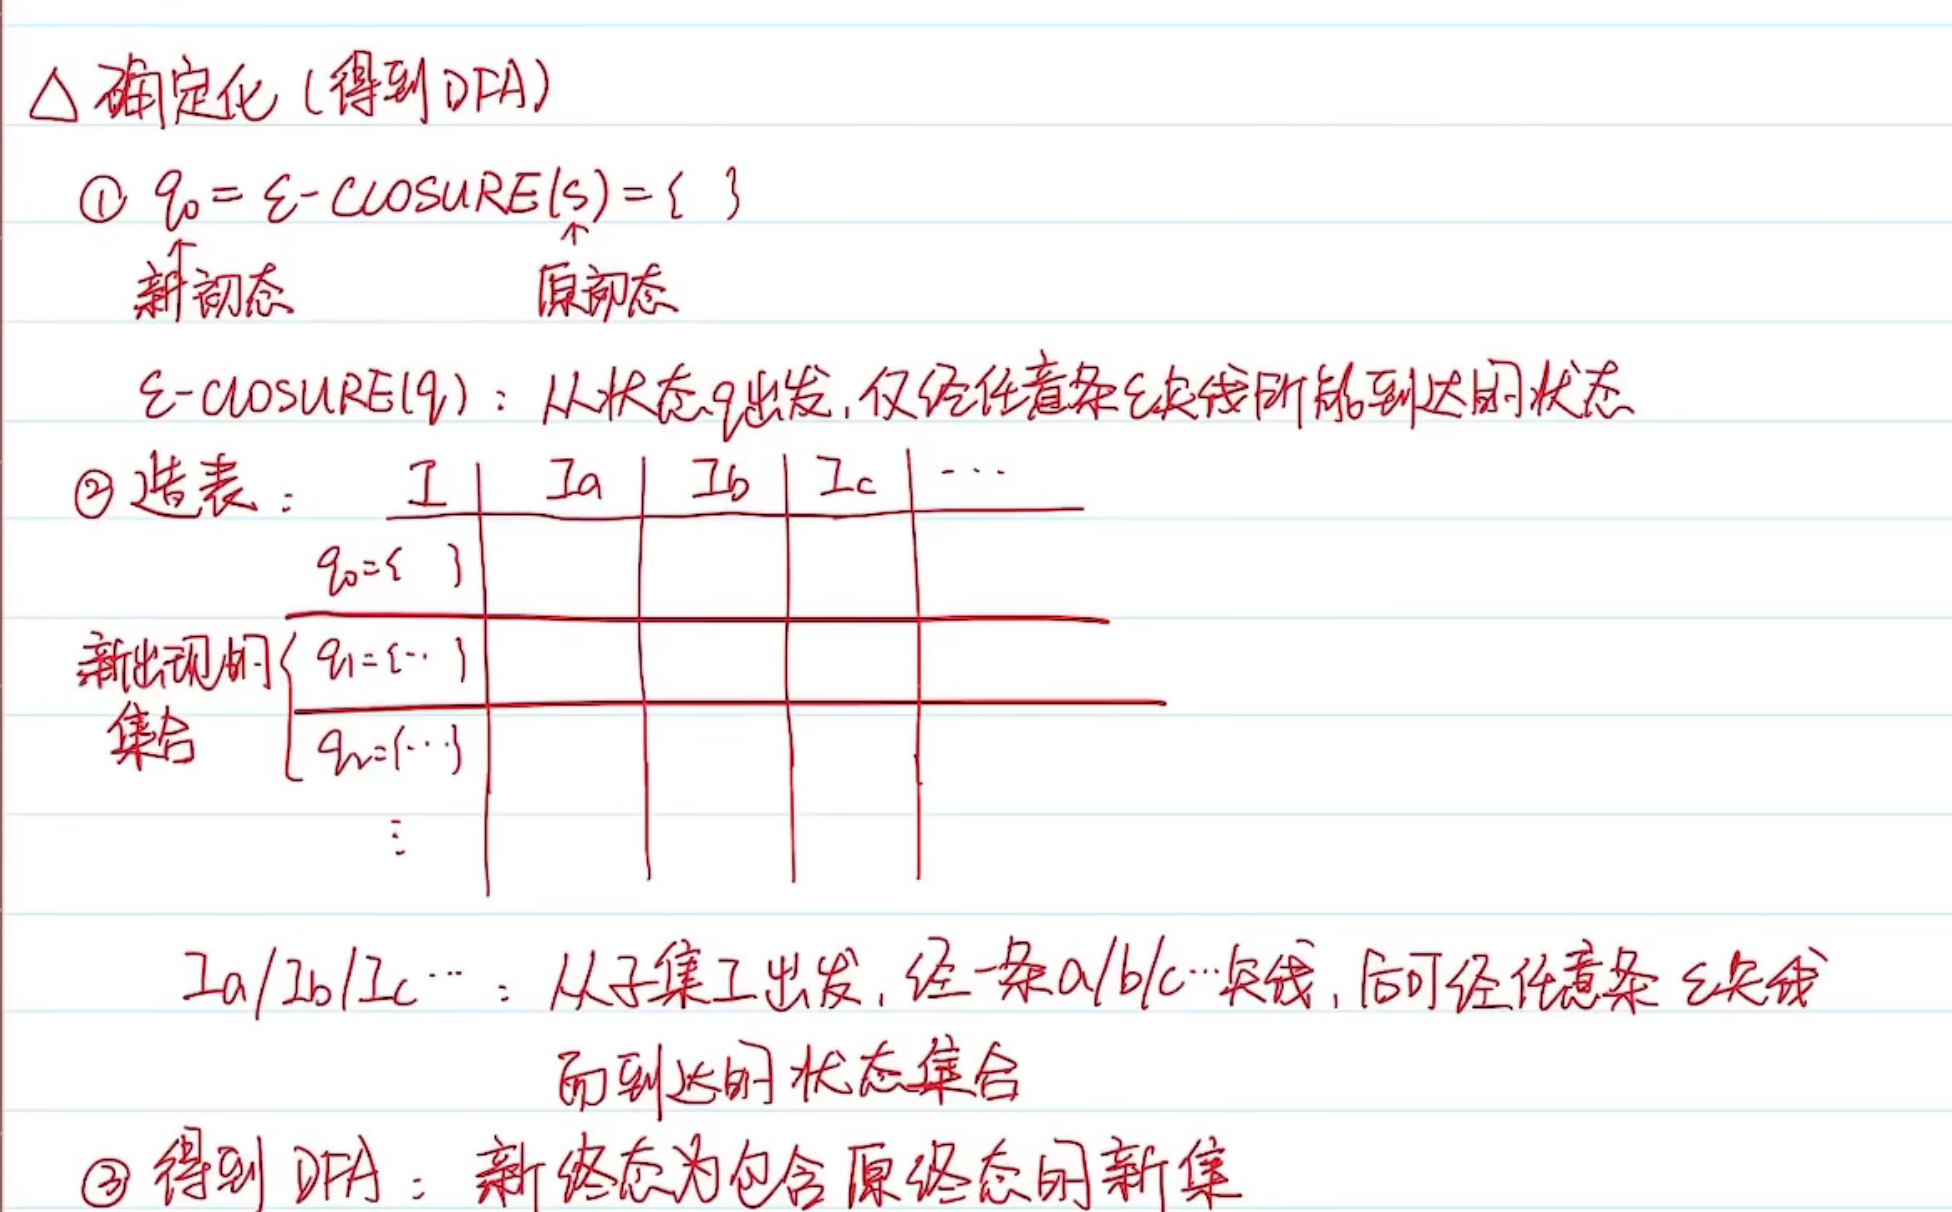 △ 确定化（得到DFA）
① q₀ = ε-CLOSURE(S) = { }
↑ ↑
新初态 原初态
ε-CLOSURE(q)：从状态q出发，仅经任意条ε矢线所能到达的状态
② 造表： I Ia Ib Ic ···
q₀={ }
新出现的 { q₁={··}
集合 q₂={···}
⋮
Ia/Ib/Ic ···：从子集I出发，经一条a/b/c···矢线，后可经任意条ε矢线
而到达的状态集合
③ 得到 DFA：新终态为包含原终态的新集